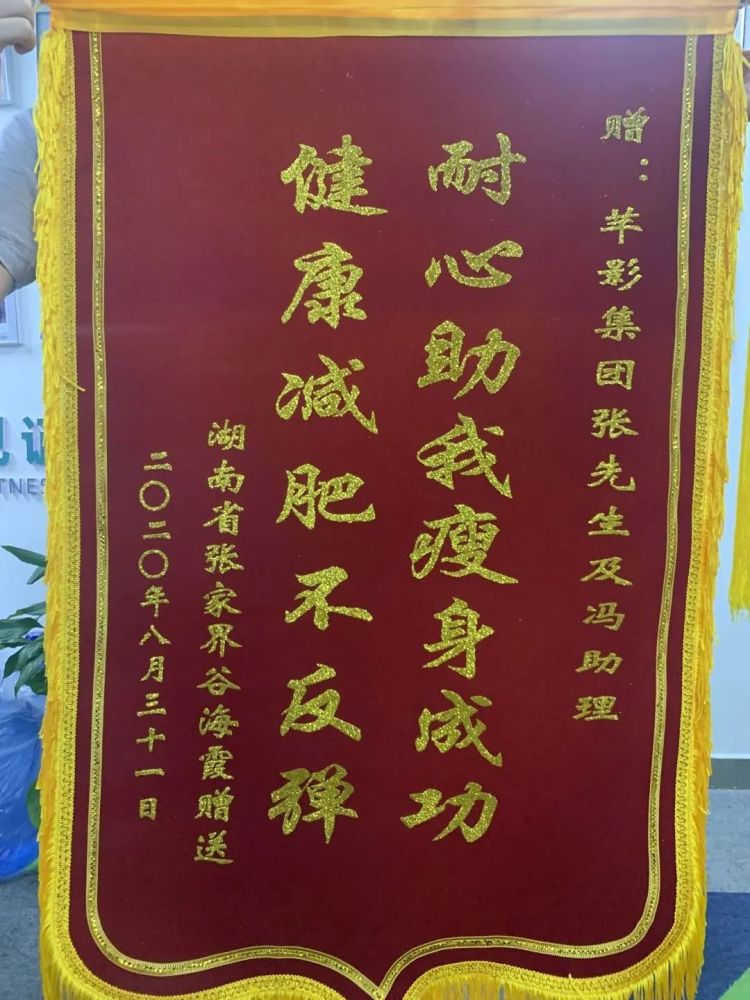 赠：芊影集团张先生及冯助理
耐心助我瘦身成功
健康减肥不反弹
湖南省张家界谷海霞赠送
二〇二〇年八月三十一日
TNES